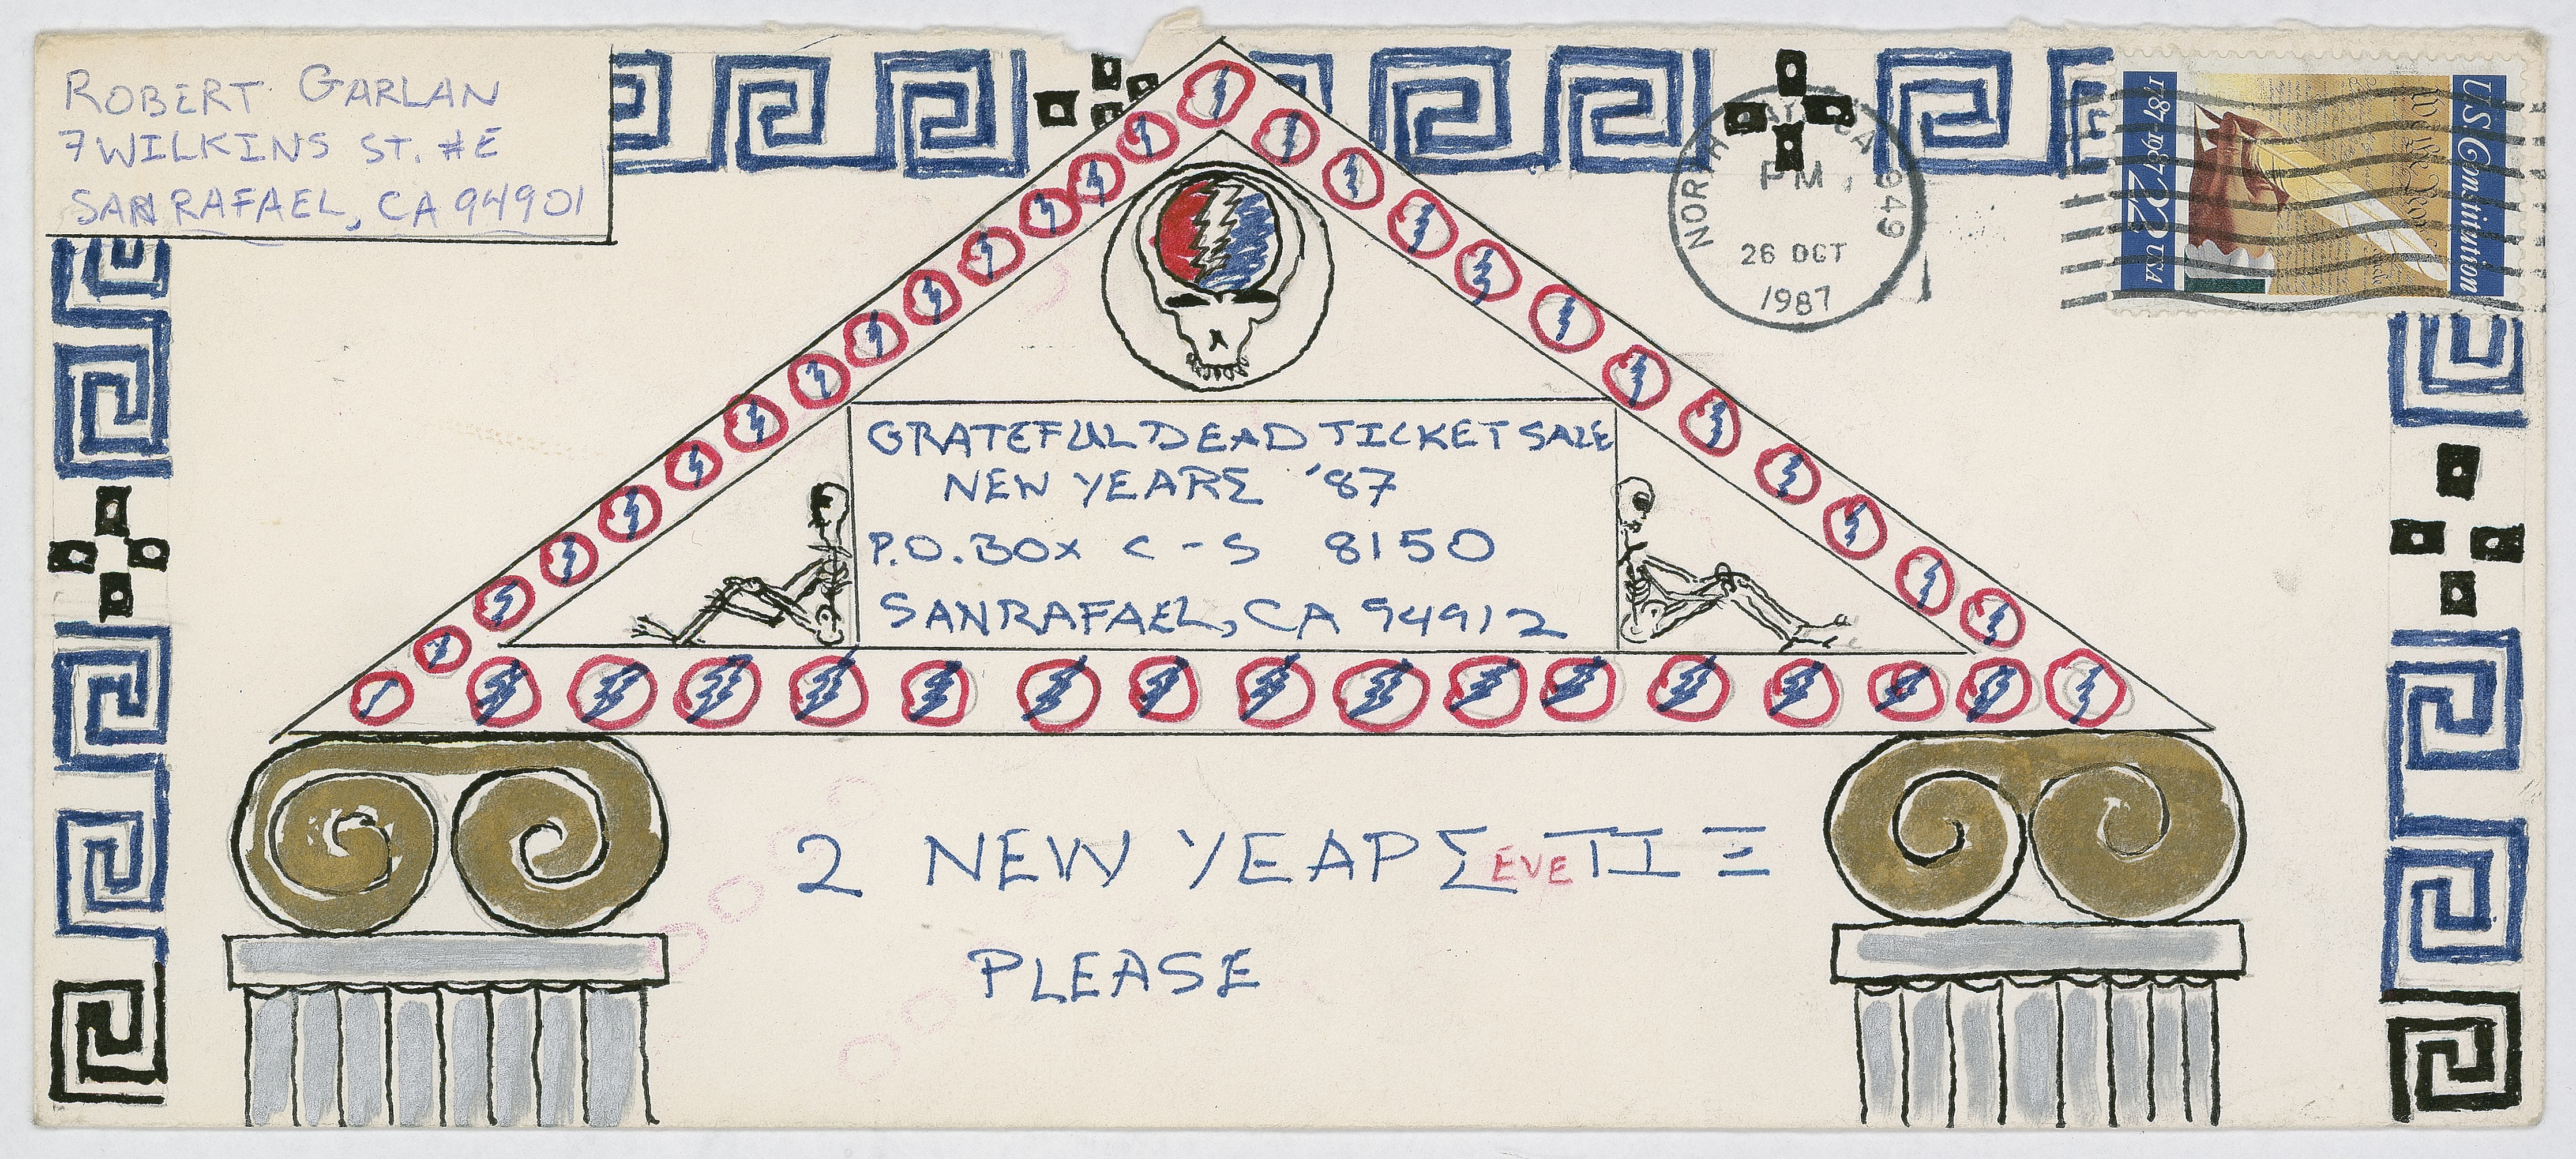 ROBERT GARLAN
7 WILKINS ST. #E
SAN RAFAEL, CA 94901
NORTH BAY CA 949
PM
26 OCT
1987
US Constitution
We the People
1787-1987 22 USA
GRATEFUL DEAD TICKET SALE
NEW YEARΣ '87
P.O. BOX C-S 8150
SAN RAFAEL, CA 94912
2 NEW YEAPΣ EVE TIΞ
PLEASE